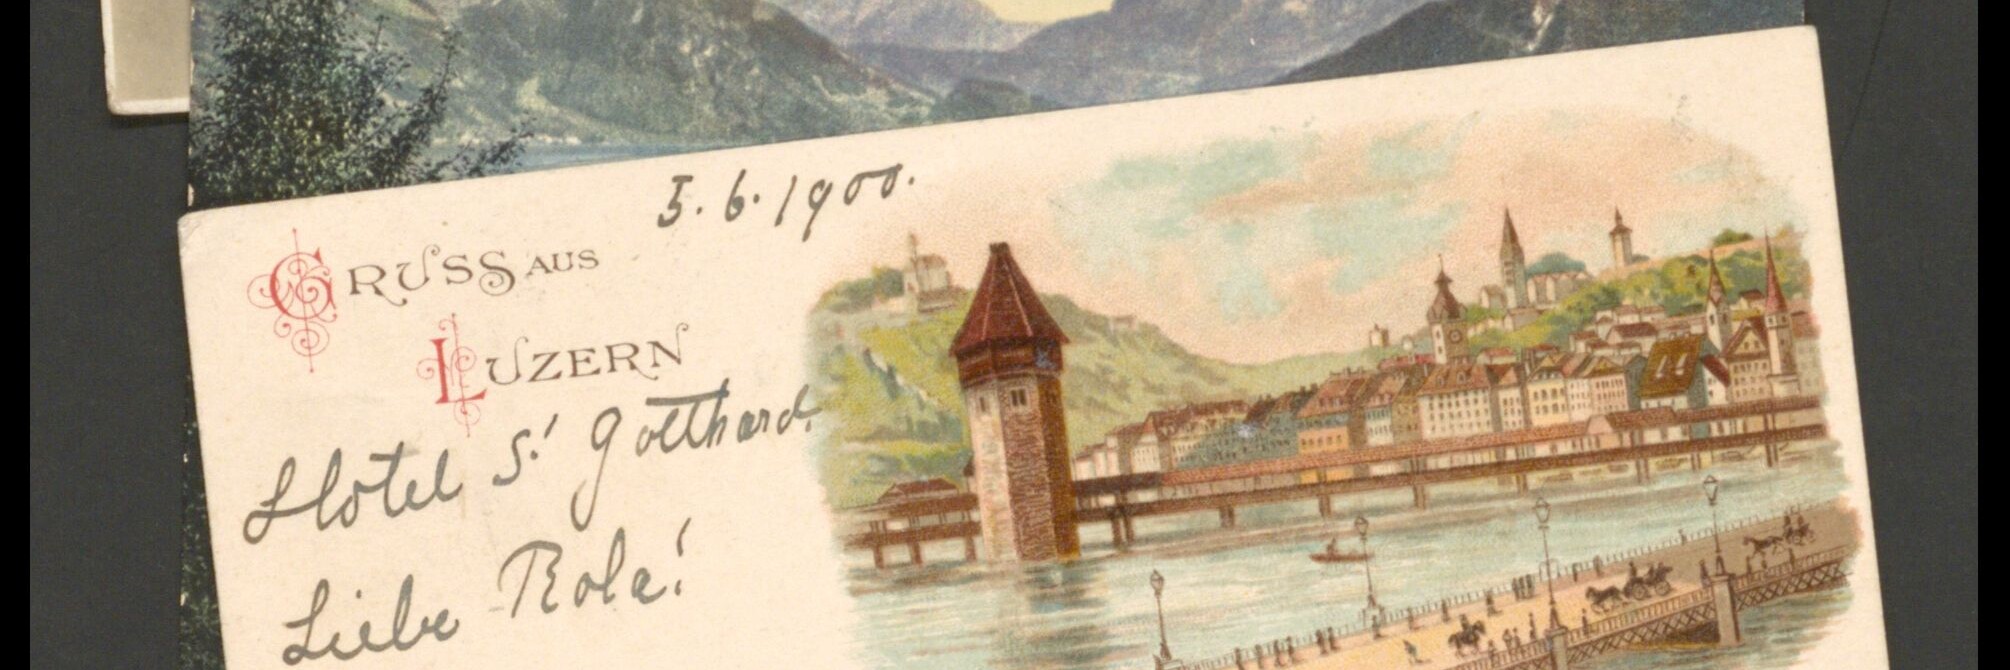 5.6.1900.
GRUSS AUS
LUZERN
Hotel St Gotthard.
Liebe Rola!